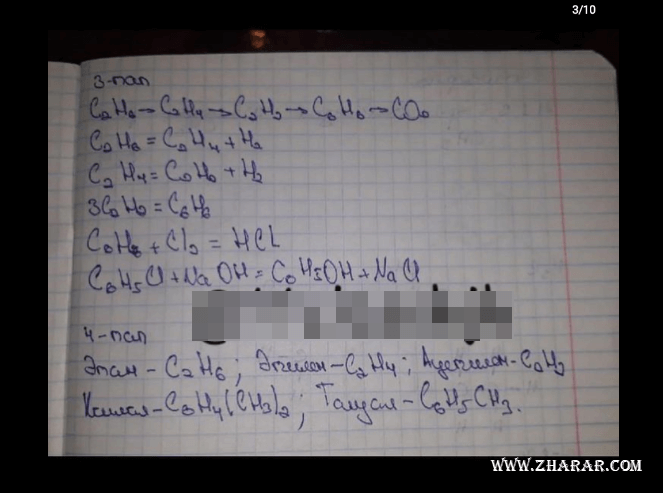 3/10
3-тап
C2H6→C2H4→C2H2→C6H6→CO2
C2H6 = C2H4 + H2
C2H4 = C2H2 + H2
3C2H2 = C6H6
C6H6 + Cl2 = HCL
C6H5Cl + NaOH = C6H5OH + NaCl
4-тап
Этан - C2H6; Этилен - C2H4; Ацетилен - C2H2
Ксилол - C6H4(CH3)2; Толуол - C6H5CH3.
WWW.ZHARAR.COM